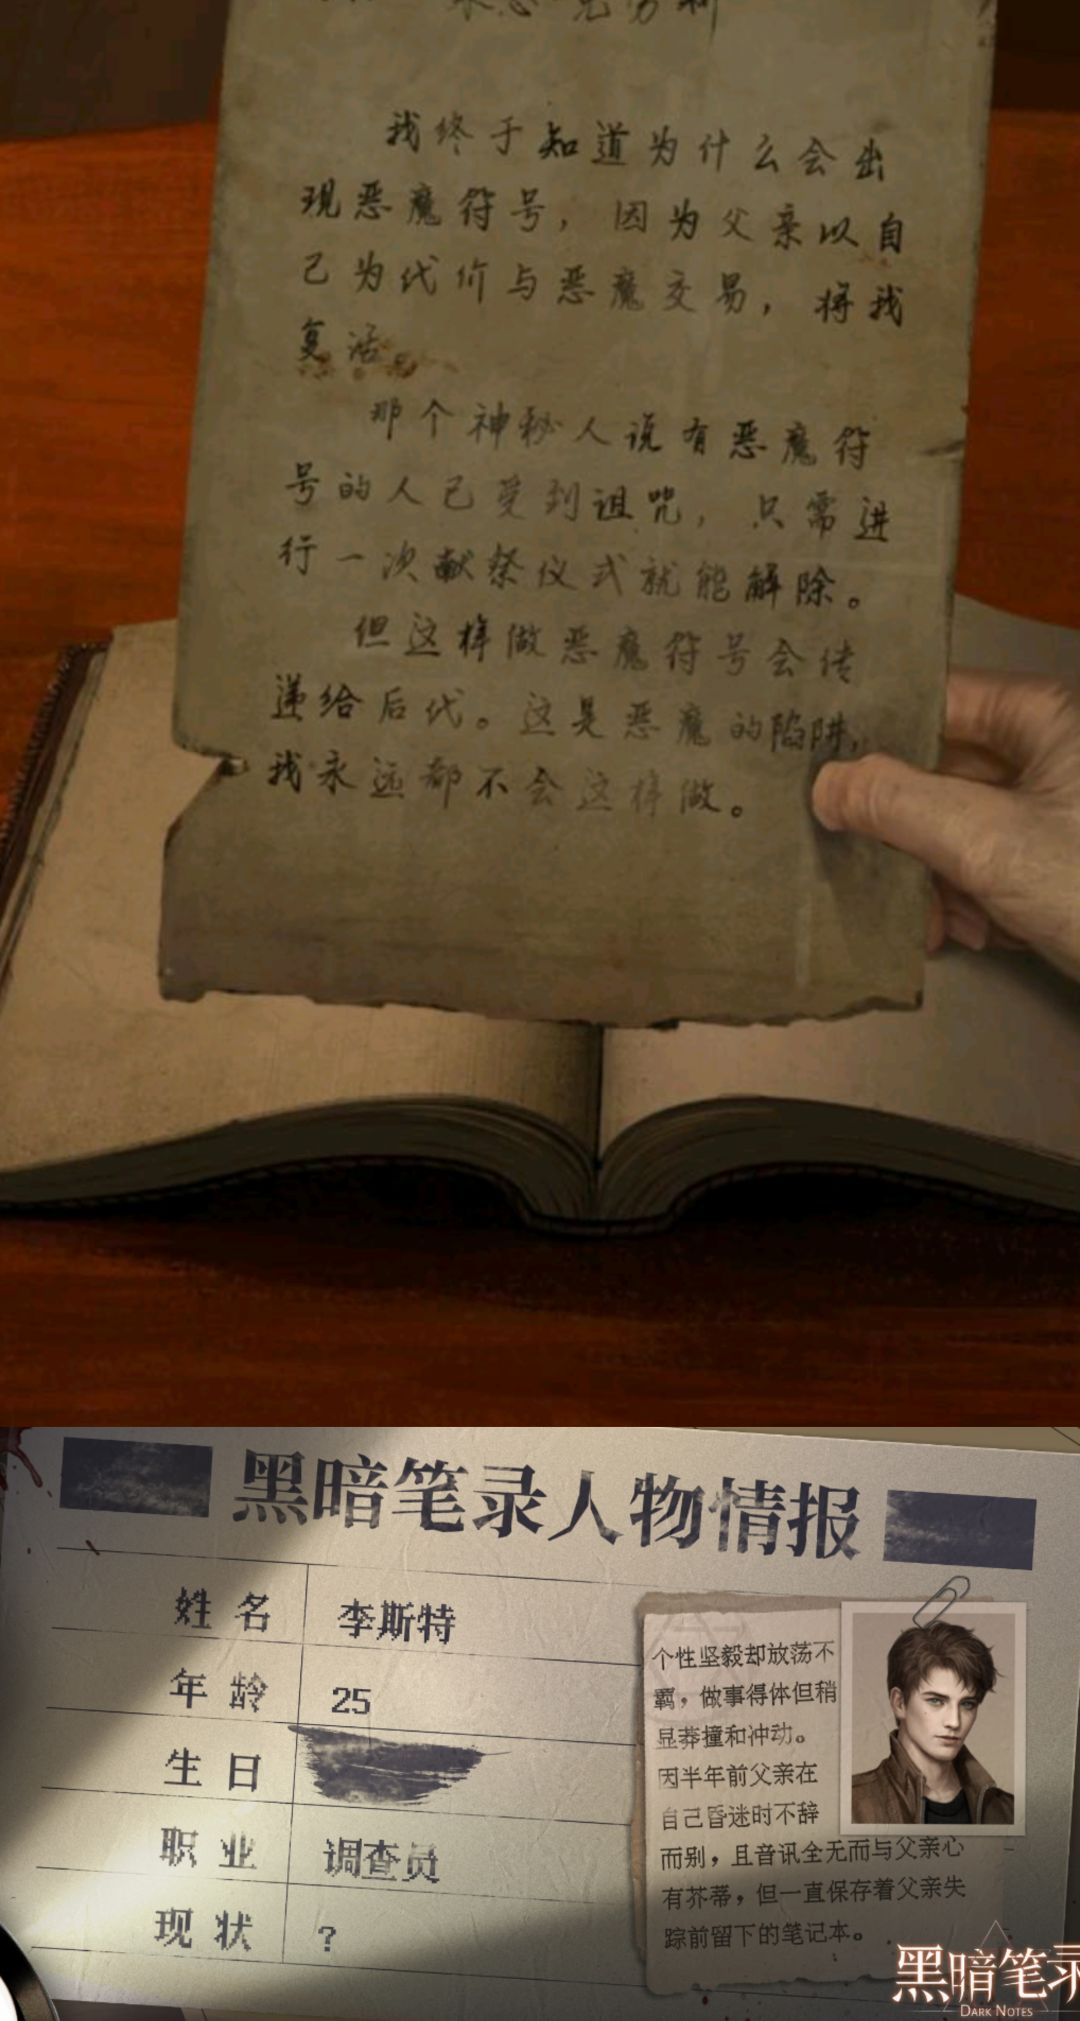 我终于知道为什么会出
现恶魔符号，因为父亲以自
己为代价与恶魔交易，将我
复活。
那个神秘人说有恶魔符
号的人已受到诅咒，只需进
行一次献祭仪式就能解除。
但这样做恶魔符号会传
递给后代。这是恶魔的陷阱，
我永远都不会这样做。
黑暗笔录人物情报
姓名 李斯特
年龄 25
生日
职业 调查员
现状 ?
个性坚毅却放荡不
羁，做事得体但稍
显莽撞和冲动。
因半年前父亲在
自己昏迷时不辞
而别，且音讯全无而与父亲心
有芥蒂，但一直保存着父亲失
踪前留下的笔记本。
黑暗笔录
DARK NOTES